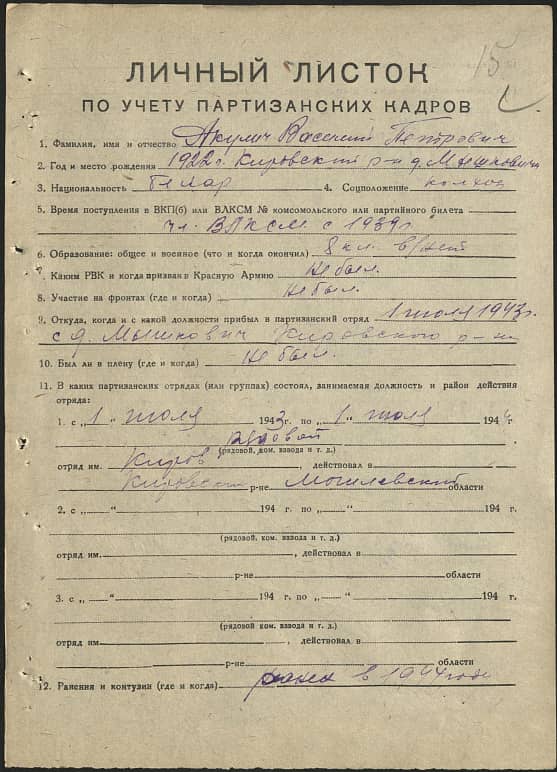 15
ЛИЧНЫЙ ЛИСТОК
ПО УЧЕТУ ПАРТИЗАНСКИХ КАДРОВ
1. Фамилия, имя и отчество Акулич Василий Петрович
2. Год и место рождения 1922 г. Кировский р-н д. Мышковичи
3. Национальность Белар 4. Соцположение колхоз
5. Время поступления в ВКП(б) или ВЛКСМ № комсомольского или партийного билета
чл. ВЛКСМ с 1939 г.
6. Образование: общее и военное (что и когда окончил) 8 кл. в/нет
7. Каким РВК и когда призван в Красную Армию Не был.
8. Участие на фронтах (где и когда) Не был.
9. Откуда, когда и с какой должности прибыл в партизанский отряд 1 июля 1943 г.
с д. Мышкович Кировского р-на
10. Был ли в плену (где и когда) Не был.
11. В каких партизанских отрядах (или группах) состоял, занимаемая должность и район действия
отряда:
1. с „1“ июля 1943 г. по „1“ июля 1944 г.
рядовой
(рядовой, ком. взвода и т. д.)
отряд им. Киров, действовал в
Кировский р-не Могилевский области
2. с „ “ 194 г. по „ “ 194 г.
(рядовой, ком. взвода и т. д.)
отряд им. , действовал в
р-не области
3. с „ “ 194 г. по „ “ 194 г.
(рядовой, ком. взвода и т. д.)
отряд им. , действовал в
р-не области
12. Ранения и контузии (где и когда) ранен в 1944 годе